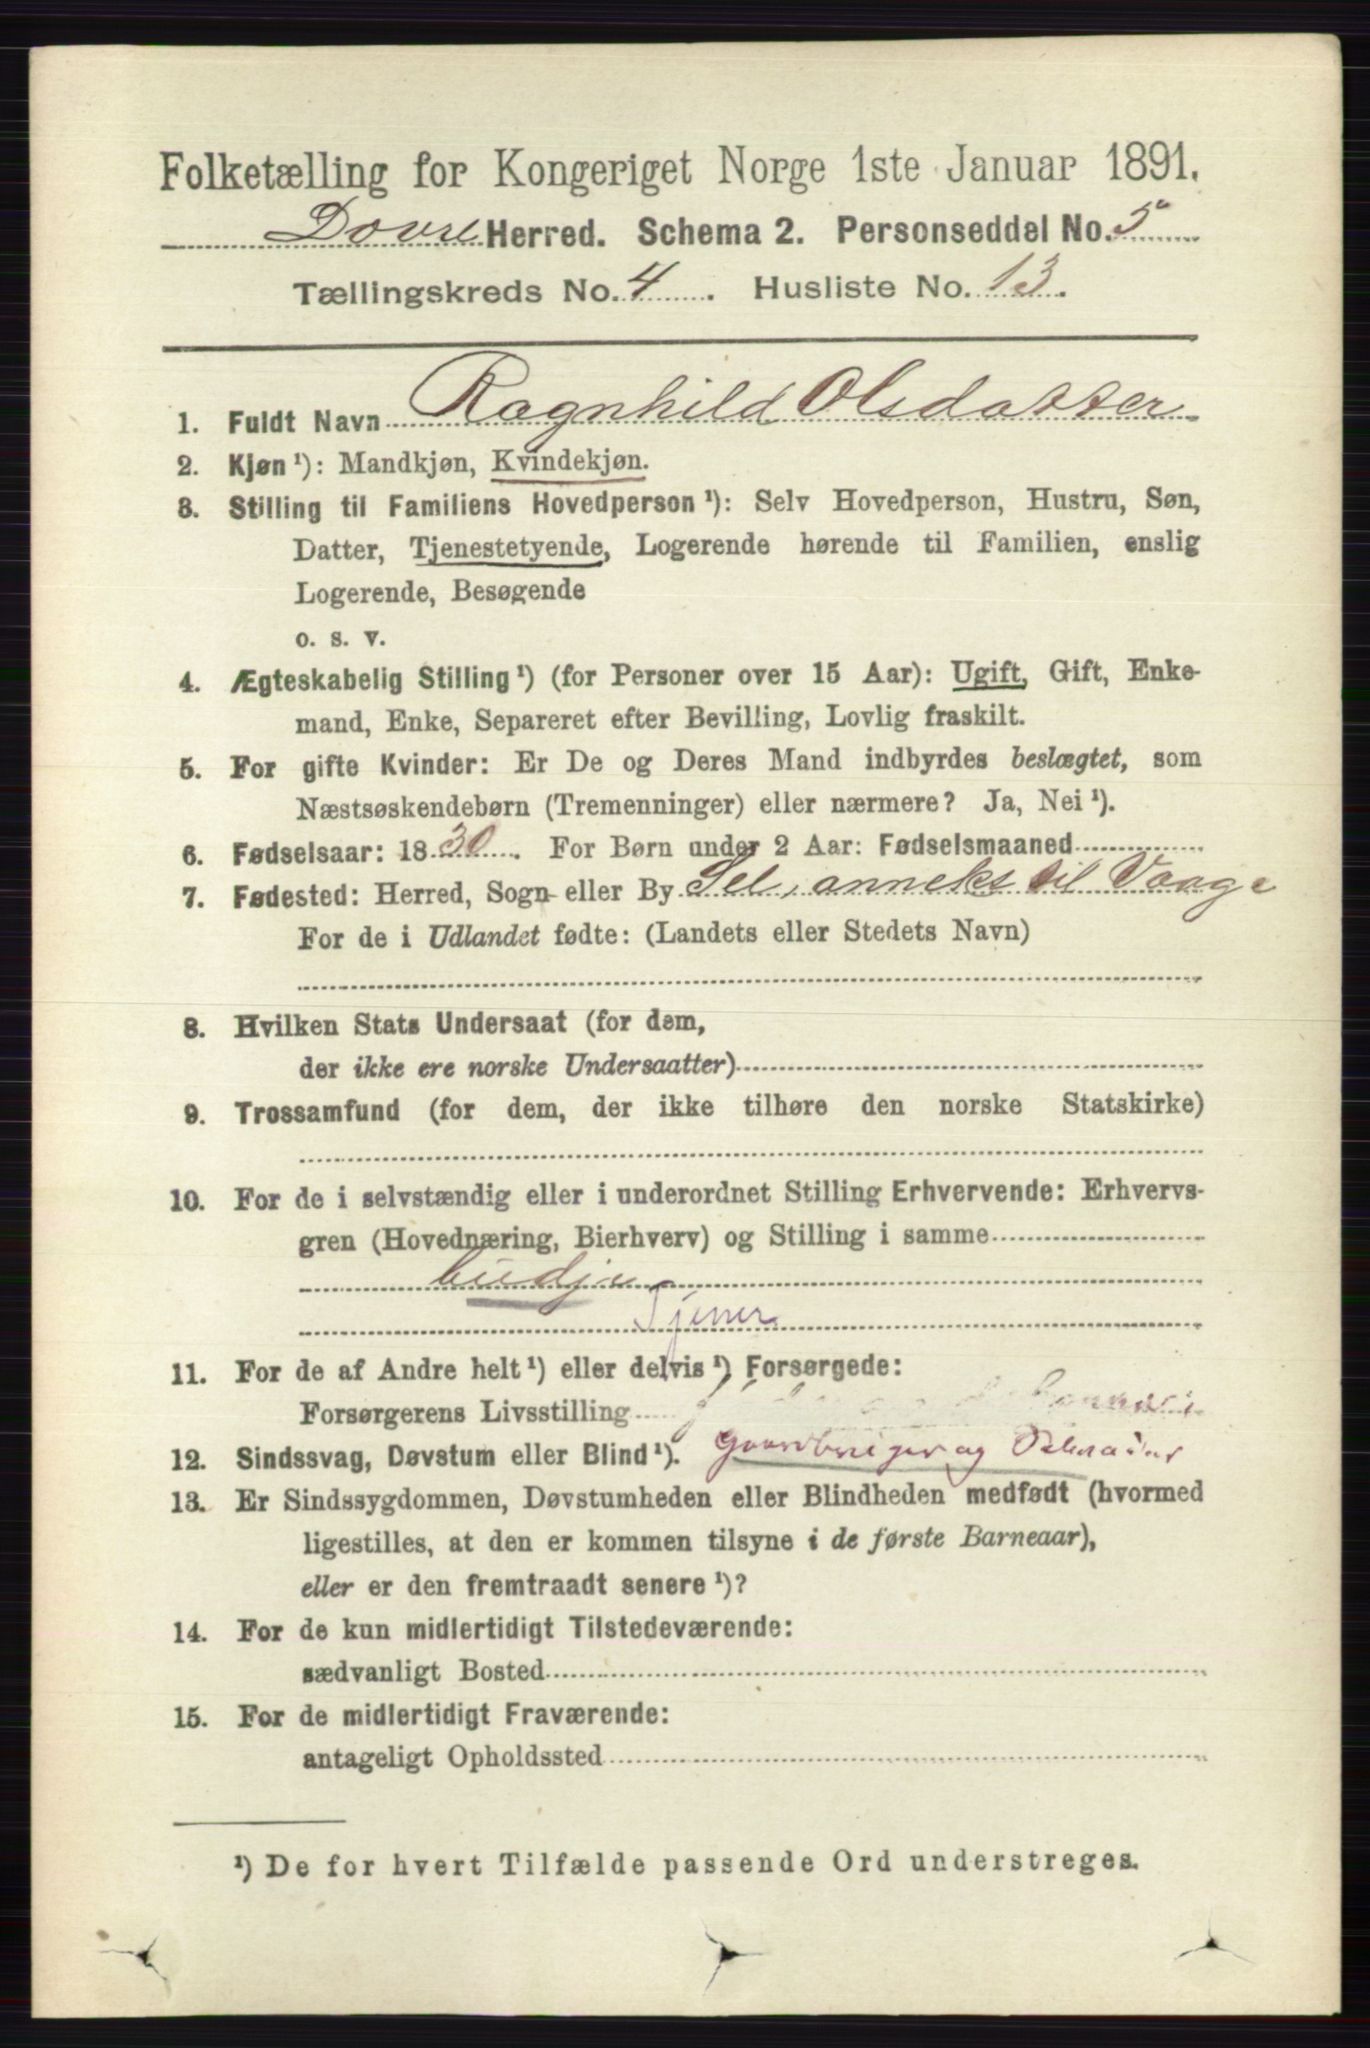 Folketælling for Kongeriget Norge 1ste Januar 1891.
Dovre Herred. Schema 2. Personseddel No. 5
Tællingskreds No. 4. Husliste No. 13.
1. Fuldt Navn Ragnhild Olsdatter
2. Kjøn ¹): Mandkjøn, Kvindekjøn.
3. Stilling til Familiens Hovedperson ¹): Selv Hovedperson, Hustru, Søn,
Datter, Tjenestetyende, Logerende hørende til Familien, enslig
Logerende, Besøgende
o. s. v.
4. Ægteskabelig Stilling ¹) (for Personer over 15 Aar): Ugift, Gift, Enke-
mand, Enke, Separeret efter Bevilling, Lovlig fraskilt.
5. For gifte Kvinder: Er De og Deres Mand indbyrdes beslægtet, som
Næstsøskendebørn (Tremenninger) eller nærmere? Ja, Nei ¹).
6. Fødselsaar: 1830. For Børn under 2 Aar: Fødselsmaaned
7. Fødested: Herred, Sogn eller By Sel, anneks til Vaage
For de i Udlandet fødte: (Landets eller Stedets Navn)
8. Hvilken Stats Undersaat (for dem,
der ikke ere norske Undersaatter)
9. Trossamfund (for dem, der ikke tilhøre den norske Statskirke)
10. For de i selvstændig eller i underordnet Stilling Erhvervende: Erhvervs-
gren (Hovednæring, Bierhverv) og Stilling i samme
budeje
Tjener
11. For de af Andre helt ¹) eller delvis ¹) Forsørgede:
Forsørgerens Livsstilling
12. Sindssvag, Døvstum eller Blind ¹). Gaardbruger og
13. Er Sindssygdommen, Døvstumheden eller Blindheden medfødt (hvormed
ligestilles, at den er kommen tilsyne i de første Barneaar),
eller er den fremtraadt senere ¹)?
14. For de kun midlertidigt Tilstedeværende:
sædvanligt Bosted
15. For de midlertidigt Fraværende:
antageligt Opholdssted
¹) De for hvert Tilfælde passende Ord understreges.